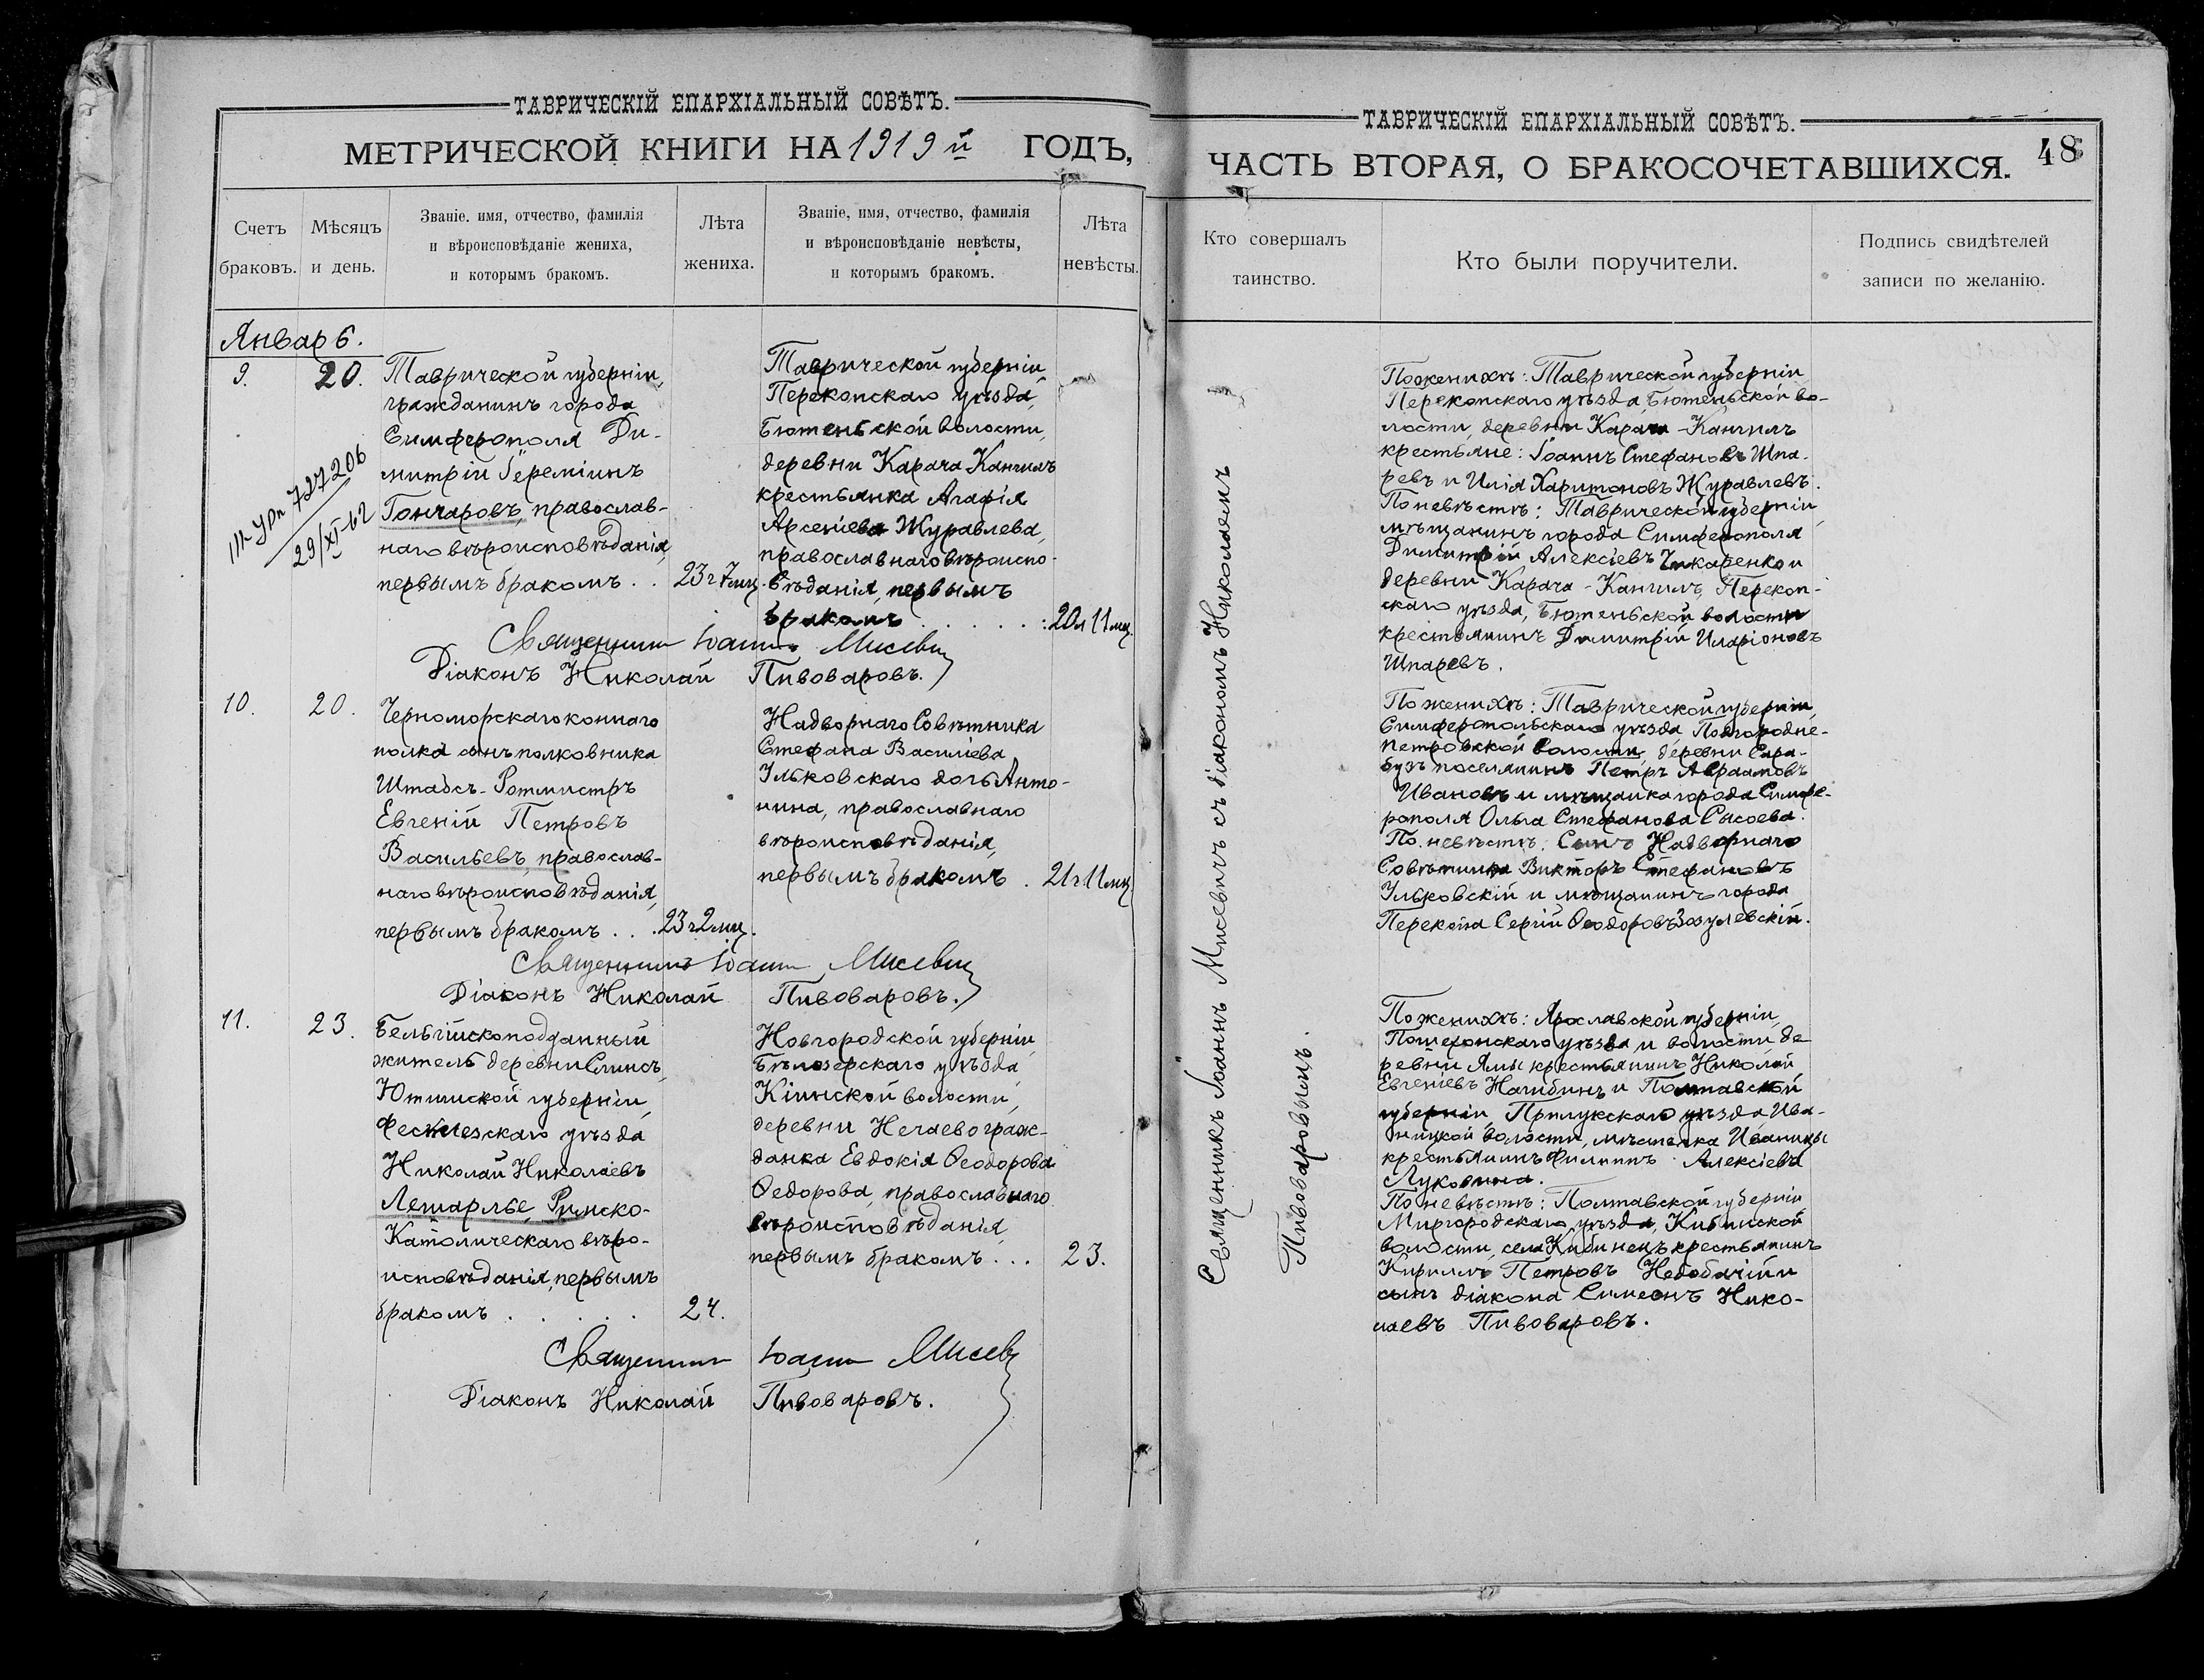 ТАВРИЧЕСКІЙ ЕПАРХІАЛЬНЫЙ СОВѢТЪ.
МЕТРИЧЕСКОЙ КНИГИ НА 1919 й ГОДЪ,
Счетъ браковъ.
Мѣсяцъ и день.
Званіе. имя, отчество, фамилія
и вѣроисповѣданіе жениха,
и которымъ бракомъ.
Лѣта
жениха.
Званіе, имя, отчество, фамилія
и вѣроисповѣданіе невѣсты,
и которымъ бракомъ.
Лѣта
невѣсты.
Январь.
9.
20.
727206
29/XI-62
Таврической губерніи,
гражданинъ города
Симферополя Ди-
митрій Іереміинъ
Гончаровъ, православ-
наго вѣроисповѣданія,
первымъ бракомъ . .
23 г 7 мц.
Таврической губерніи,
Перекопскаго уѣзда,
Бютеньской волости,
деревни Карача Кангилъ
крестьянка Агафія
Арсеніева Журавлева,
православнаго вѣроиспо-
вѣданія, первымъ
бракомъ . . . . . .
20 л 11 мц.
Священникъ Іоаннъ Мисевич
Діаконъ Николай Пивоваровъ.
10.
20.
Черноморскаго коннаго
полка сынъ полковника
Штабсъ-Ротмистръ
Евгеній Петровъ
Васильевъ, православ-
наго вѣроисповѣданія,
первымъ бракомъ . . .
23 г 2 мц.
Надворнаго Совѣтника
Стефана Василіева
Ульковскаго дочь Анто-
нина, православнаго
вѣроисповѣданія,
первымъ бракомъ .
21 г 11 мц.
Священникъ Іоаннъ Мисевич
Діаконъ Николай Пивоваровъ.
11.
23.
Бельгійскоподданный
житель деревни Слинсъ,
губерніи,
уѣзда
Николай Николаевъ
Лемарлье, Римско-
Католическаго вѣро-
исповѣданія, первымъ
бракомъ . . . . .
24.
Новгородской губерніи,
Бѣлозерскаго уѣзда,
Кіинской волости,
деревни Нечаево граж-
данка Евдокія Ѳеодорова
Ѳедорова, православнаго
вѣроисповѣданія,
первымъ бракомъ . . .
23.
Священникъ Іоаннъ Мисевич
Діаконъ Николай Пивоваровъ.
ТАВРИЧЕСКІЙ ЕПАРХІАЛЬНЫЙ СОВѢТЪ.
ЧАСТЬ ВТОРАЯ, О БРАКОСОЧЕТАВШИХСЯ.
48
Кто совершалъ
таинство.
Кто были поручители.
Подпись свидѣтелей
записи по желанію.
Священникъ Іоаннъ Мисевичъ съ діакономъ Николаемъ
Пивоваровымъ.
По женихѣ: Таврической губерніи
Перекопскаго уѣзда, Бютеньской во-
лости, деревни Карача-Кангилъ
крестьяне: Іоаннъ Стефановъ Шпа-
ревъ и Илія Харитоновъ Журавлевъ.
По невѣстѣ: Таврической губерніи,
мѣщанинъ города Симферополя
Димитрій Алексіевъ Чикаренко и
деревни Карача-Кангилъ, Перекоп-
скаго уѣзда, Бютеньской волости
крестьянинъ Димитрій Иларіоновъ
Шпаревъ.
По женихѣ: Таврической губерніи,
Симферопольскаго уѣзда, Подгородне-
Петровской волости, деревни Сара-
бузъ поселянинъ Петръ Авраамовъ
Ивановъ и мѣщанка города Симфе-
рополя Ольга Стефанова Сысоева.
По невѣстѣ: Сынъ Надворнаго
Совѣтника Викторъ Стефановъ
Ульковскій и мѣщанинъ города
Перекопа Сергій Ѳеодоровъ Зозулевскій.
По женихѣ: Ярославской губерніи,
Пошехонскаго уѣзда и волости, де-
ревни Ямы крестьянинъ Николай
Евгеніевъ Нагибинъ и Полтавской
губерніи, Прилукскаго уѣзда, Ива-
ницкой волости, мѣстечка Иваницы
крестьянинъ Филиппъ Алексіевъ
Луковина.
По невѣстѣ: Полтавской губерніи
Миргородскаго уѣзда, Кибинской
волости, села Кибинецъ крестьянинъ
Кириллъ Петровъ Недобачій и
сынъ діакона Симеонъ Нико-
лаевъ Пивоваровъ.